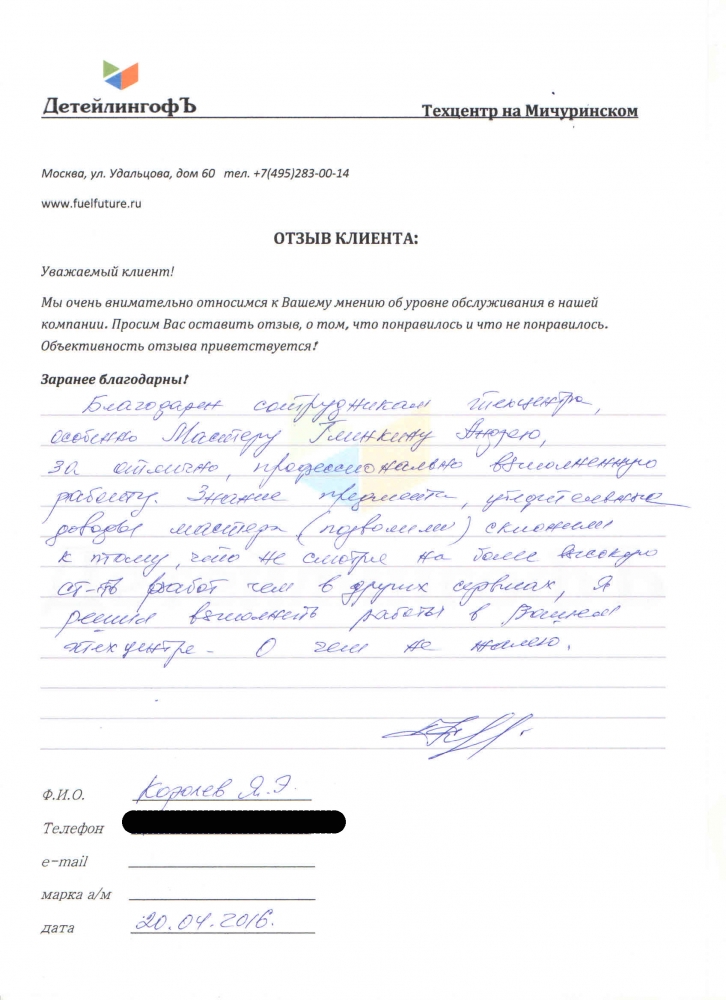 ДетейлингофЪ
Техцентр на Мичуринском
Москва, ул. Удальцова, дом 60 тел. +7(495)283-00-14
www.fuelfuture.ru
ОТЗЫВ КЛИЕНТА:
Уважаемый клиент!
Мы очень внимательно относимся к Вашему мнению об уровне обслуживания в нашей
компании. Просим Вас оставить отзыв, о том, что понравилось и что не понравилось.
Объективность отзыва приветствуется!
Заранее благодарны!
Благодарен сотрудникам техцентра,
особенно Мастеру Глинкину Андрею,
за отлично, профессионально выполненную
работу. Знание предмета, убедительные
доводы мастера, (позволили) склонили
к тому, что не смотря на более высокую
ст-ть работ чем в других сервисах, я
решил выполнить работы в Вашем
техцентре. О чем не жалею.
Ф.И.О. Королев Я.Э.
Телефон
e-mail
марка а/м
дата 20.04.2016.